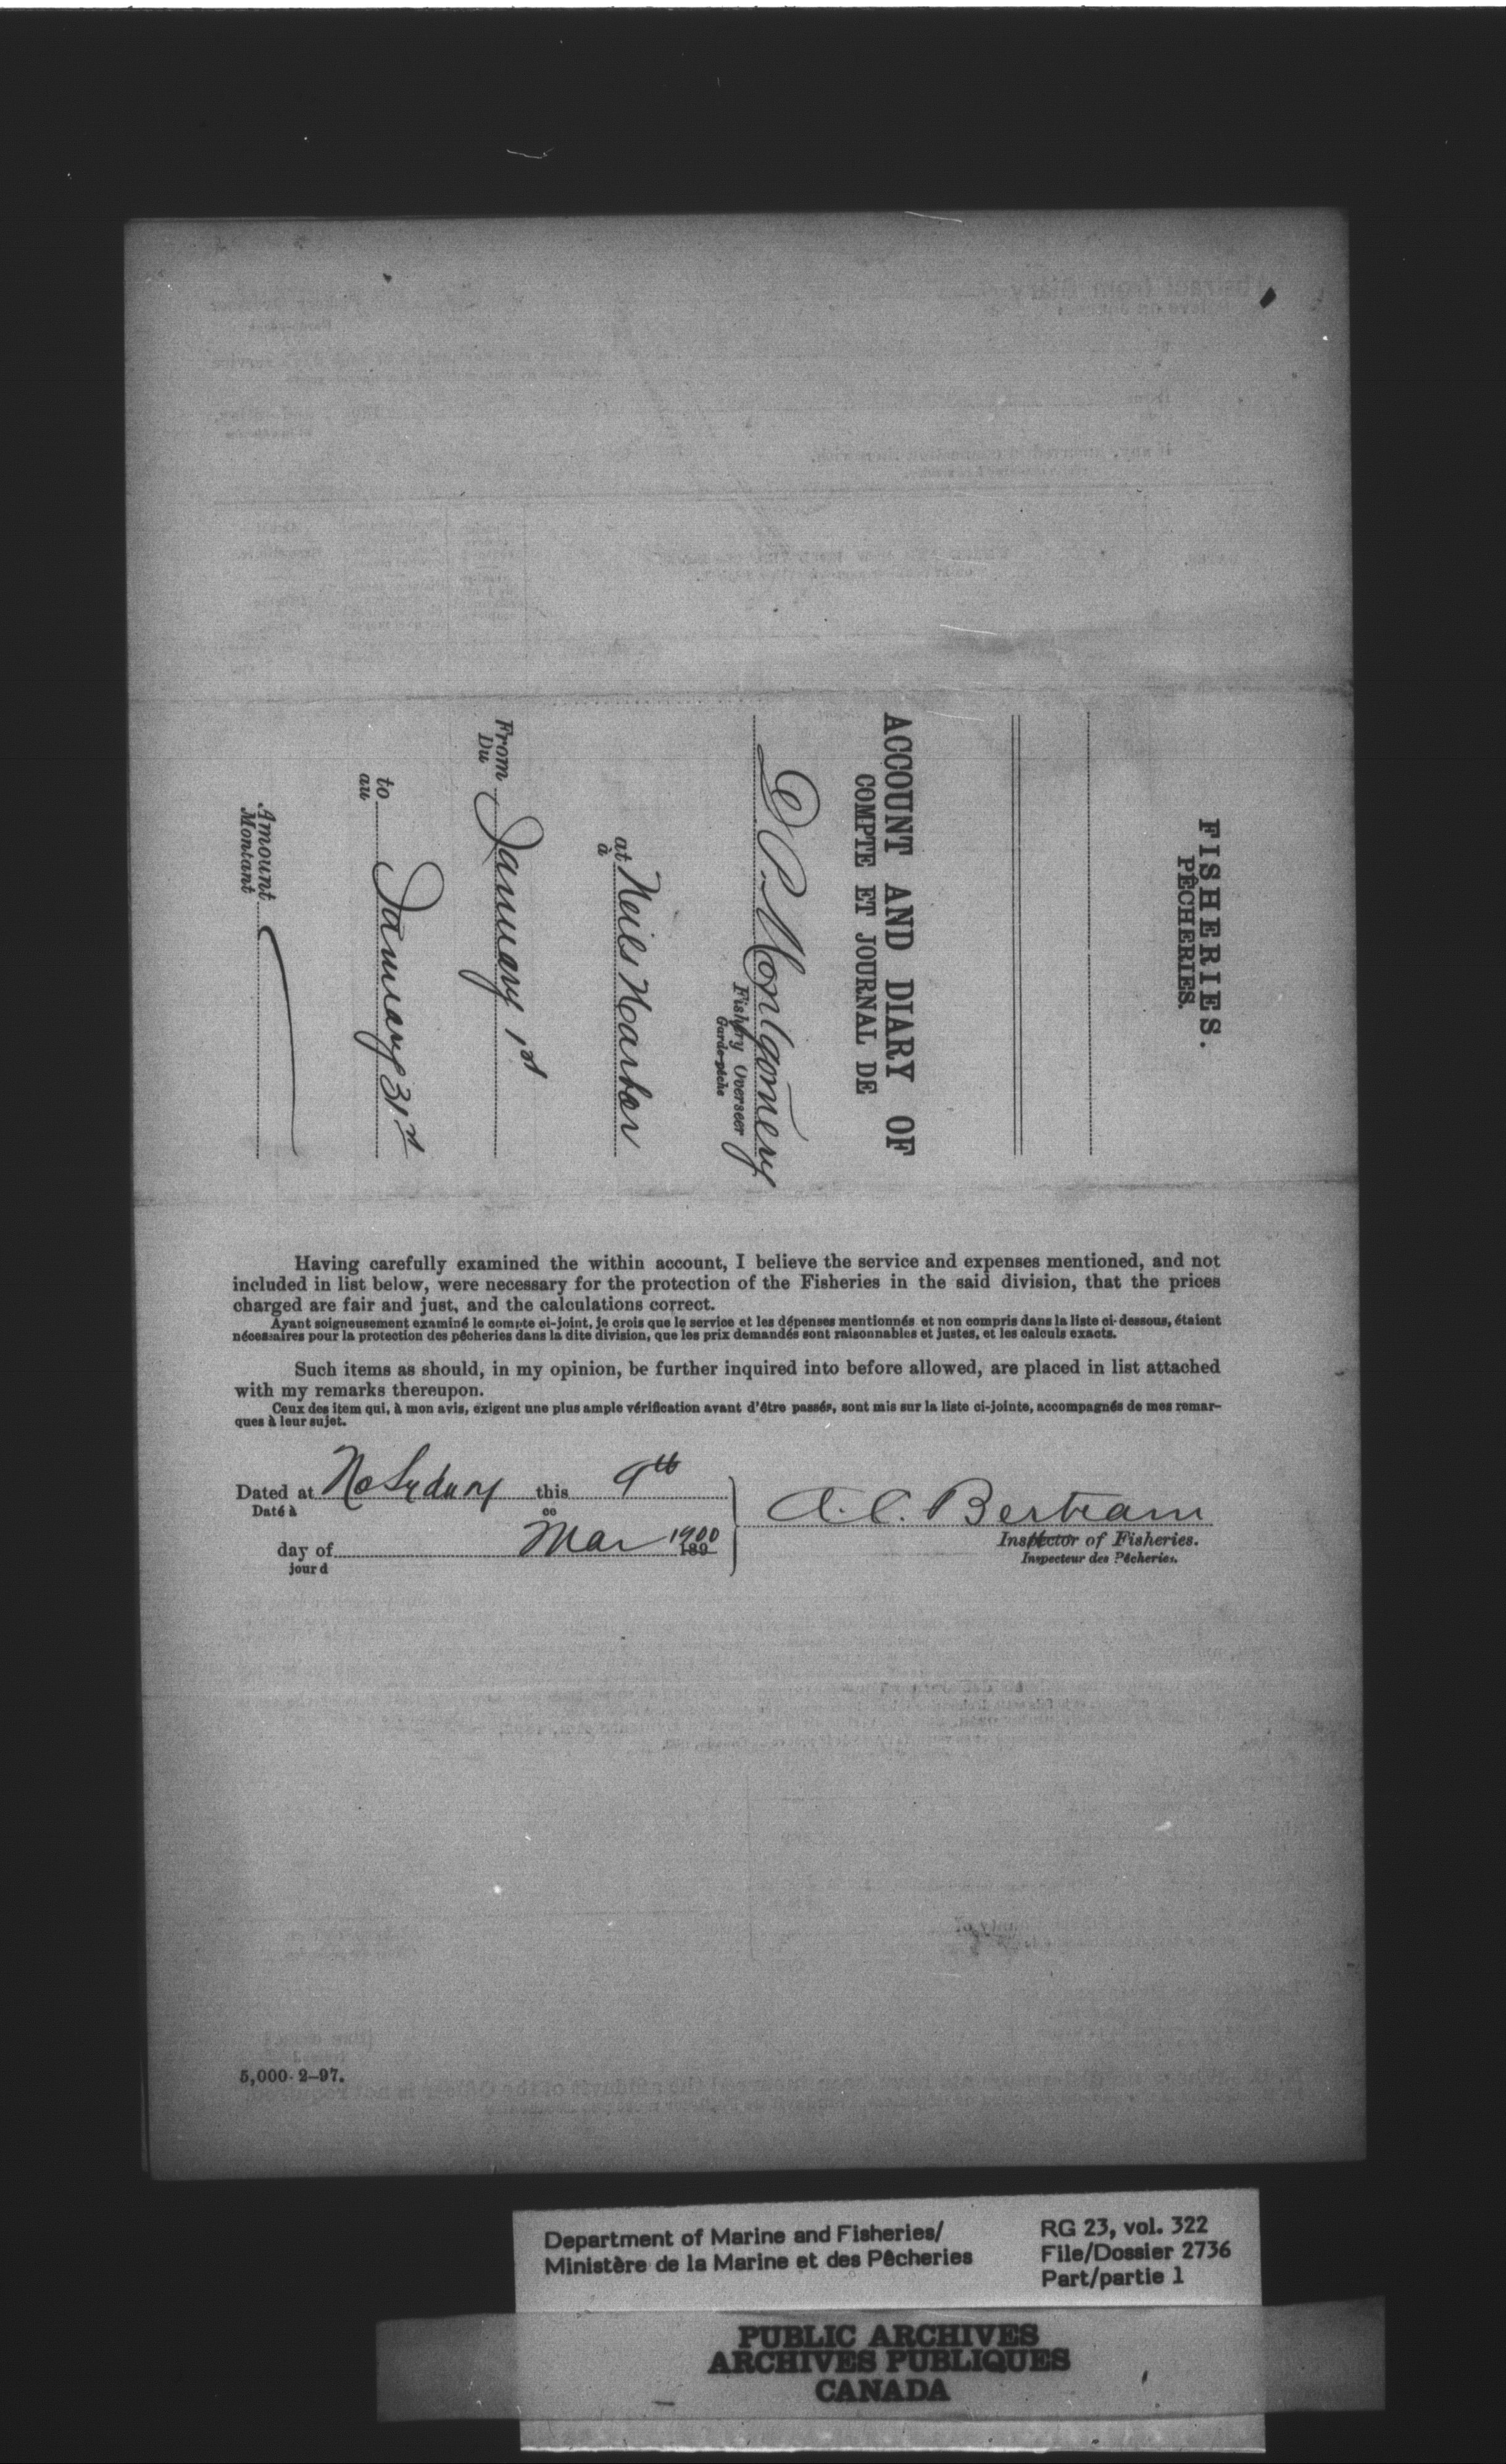 FISHERIES.
PÊCHERIES.
ACCOUNT AND DIARY OF
COMPTE ET JOURNAL DE
D P Montgomery
Fishery Overseer
Garde-pêche
at Neils Harbor
à
From January 1st
Du
to January 31st
au
Amount
Montant
Having carefully examined the within account, I believe the service and expenses mentioned, and not
included in list below, were necessary for the protection of the Fisheries in the said division, that the prices
charged are fair and just, and the calculations correct.
Ayant soigneusement examiné le compte ci-joint, je crois que le service et les dépenses mentionnés et non compris dans la liste ci-dessous, étaient
nécessaires pour la protection des pêcheries dans la dite division, que les prix demandés sont raisonnables et justes, et les calculs exacts.
Such items as should, in my opinion, be further inquired into before allowed, are placed in list attached
with my remarks thereupon.
Ceux des item qui, à mon avis, exigent une plus ample vérification avant d'être passés, sont mis sur la liste ci-jointe, accompagnés de mes remar-
ques à leur sujet.
Dated at No Sydney this 9th
Daté à ce
day of Mar 1900 189
jour d
A. C. Bertram
Inspector of Fisheries.
Inspecteur des Pêcheries.
5,000-2-97.
Department of Marine and Fisheries/
Ministère de la Marine et des Pêcheries
RG 23, vol. 322
File/Dossier 2736
Part/partie 1
PUBLIC ARCHIVES
ARCHIVES PUBLIQUES
CANADA